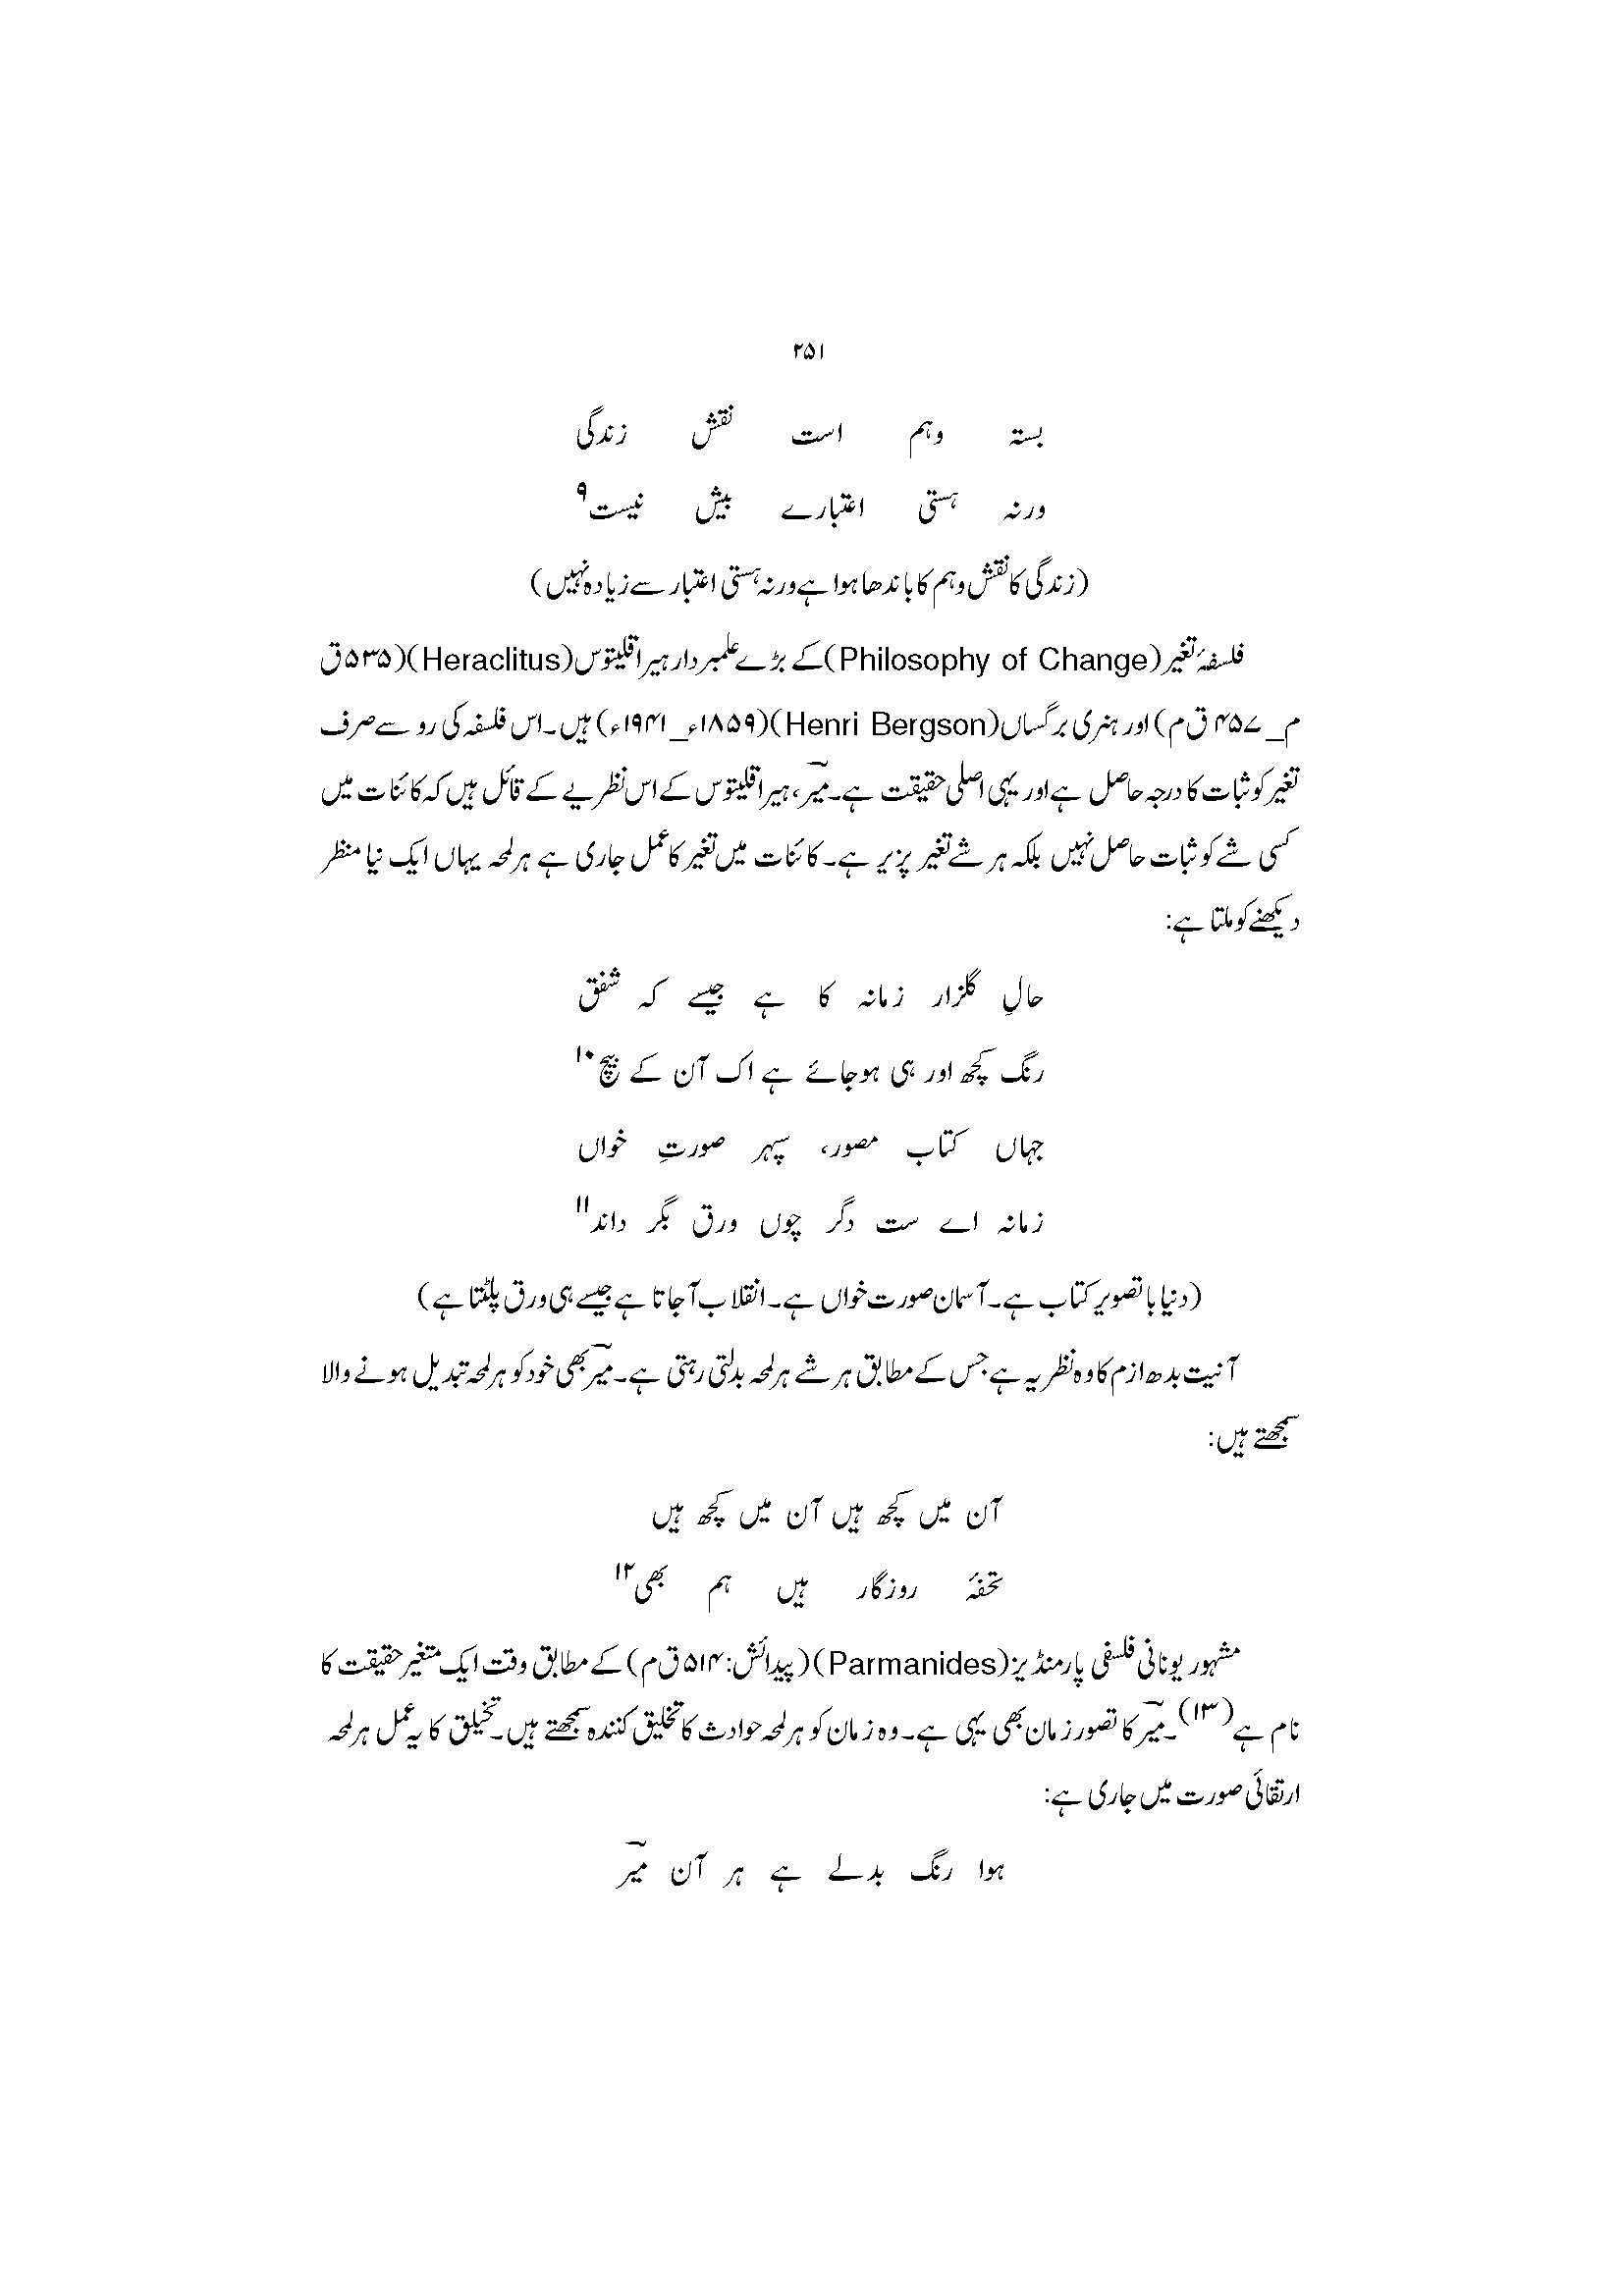 ۲۵۱
بستہ وہم است نقش زندگی
ورنہ ہستی اعتبارے بیش نیست۹
(زندگی کا نقش وہم کا باندھا ہوا ہے ورنہ ہستی اعتبار سے زیادہ نہیں)
فلسفۂ تغیر (Philosophy of Change) کے بڑے علمبردار ہیراقلیتوس (Heraclitus) (۵۳۵ ق
م_۴۵۷ ق م) اور ہنری برگساں (Henri Bergson) (۱۸۵۹ء_۱۹۴۱ء) ہیں۔ اس فلسفہ کی رو سے صرف
تغیر کو ثبات کا درجہ حاصل ہے اور یہی اصلی حقیقت ہے۔ میرؔ، ہیراقلیتوس کے اس نظریے کے قائل ہیں کہ کائنات میں
کسی شے کو ثبات حاصل نہیں بلکہ ہر شے تغیر پزیر ہے۔ کائنات میں تغیر کا عمل جاری ہے ہر لمحہ یہاں ایک نیا منظر
دیکھنے کو ملتا ہے:
حالِ گلزار زمانہ کا ہے جیسے کہ شفق
رنگ کچھ اور ہی ہو جائے ہے اک آن کے بیچ۱۰
جہاں کتاب مصور، سپہر صورتِ خواں
زمانہ اے ست دگر چوں ورق بگر داند۱۱
(دنیا با تصویر کتاب ہے۔ آسمان صورت خواں ہے۔ انقلاب آ جاتا ہے جیسے ہی ورق پلٹتا ہے)
آنیت بدھ ازم کا وہ نظریہ ہے جس کے مطابق ہر شے ہر لمحہ بدلتی رہتی ہے۔ میرؔ بھی خود کو ہر لمحہ تبدیل ہونے والا
سمجھتے ہیں:
آن میں کچھ ہیں آن میں کچھ ہیں
تحفۂ روزگار ہیں ہم بھی۱۲
مشہور یونانی فلسفی پارمنڈیز (Parmanides) (پیدائش: ۵۱۴ ق م) کے مطابق وقت ایک متغیر حقیقت کا
نام ہے (۱۳)۔ میرؔ کا تصور زمان بھی یہی ہے۔ وہ زمان کو ہر لمحہ حوادث کا تخلیق کنندہ سمجھتے ہیں۔ تخیلق کا یہ عمل ہر لمحہ
ارتقائی صورت میں جاری ہے:
ہوا رنگ بدلے ہے ہر آن میرؔ